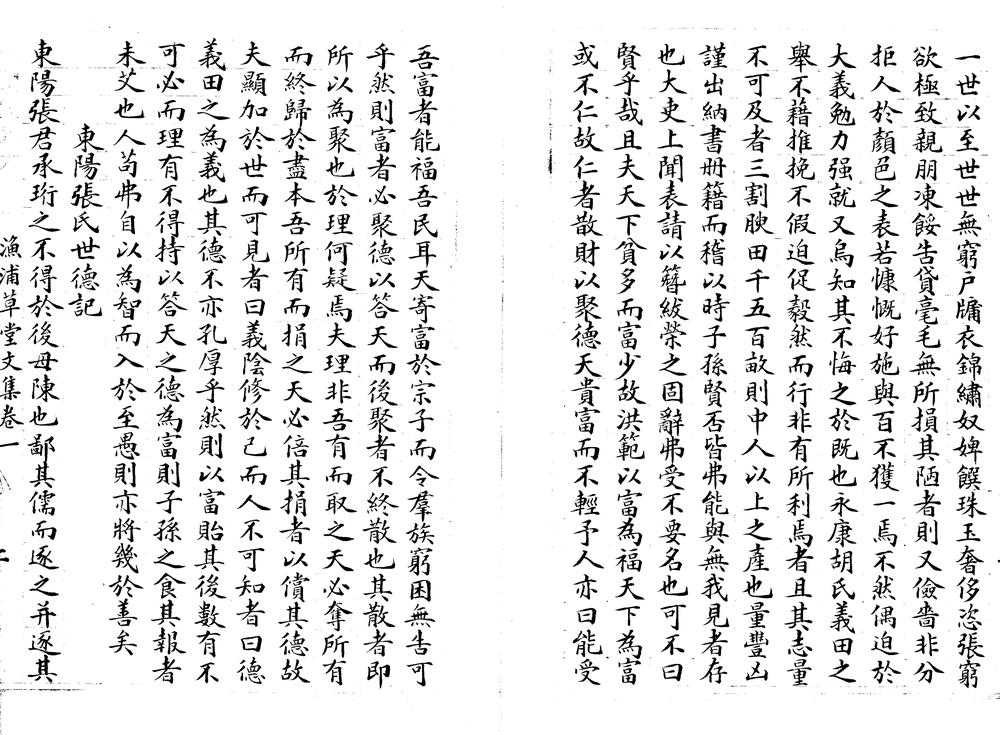 一世以至世世無窮戶牖衣錦繡奴婢饌珠玉奢侈恣張窮
欲極致親朋凍餒告貸毫毛無所損其陋者則又儉嗇非分
拒人於顏色之表若慷慨好施與百不獲一焉不然偶迫於
大義勉力强就又烏知其不悔之於既也永康胡氏義田之
舉不藉推挽不假迫促毅然而行非有所利焉者且其志量
不可及者三割腴田千五百畝則中人以上之產也量豐凶
謹出納書冊籍而稽以時子孫賢否皆弗能與無我見者存
也大吏上聞表請以簪紱榮之固辭弗受不要名也可不曰
賢乎哉且夫天下貧多而富少故洪範以富為福天下為富
或不仁故仁者散財以聚德天貴富而不輕予人亦曰能受
吾富者能福吾民耳天寄富於宗子而令羣族窮困無告可
乎然則富者必聚德以答天而後聚者不終散也其散者即
所以為聚也於理何疑焉夫理非吾有而取之天必奪所有
而終歸於盡本吾所有而捐之天必倍其捐者以償其德故
夫顯加於世而可見者曰義陰修於己而人不可知者曰德
義田之為義也其德不亦孔厚乎然則以富貽其後數有不
可必而理有不得持以答天之德為富則子孫之食其報者
未艾也人苟弗自以為智而入於至愚則亦將幾於善矣
東陽張氏世德記
東陽張君承珩之不得於後母陳也鄙其儒而逐之并逐其
漁浦草堂文集卷一